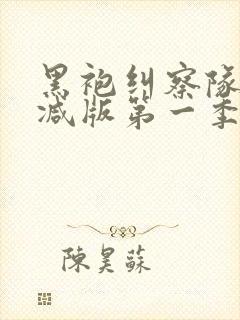 黑袍纠察队
减版第一季
陳昊蘇